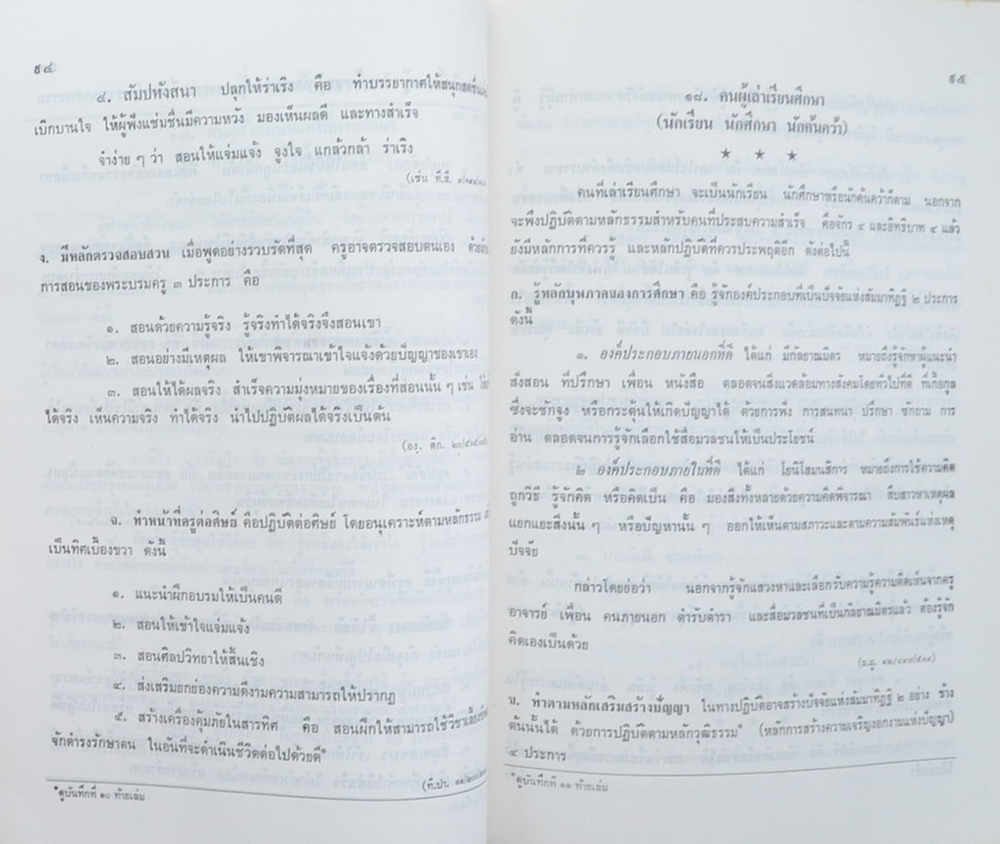 ๙๔
๔. สัมปหังสนา ปลุกให้ร่าเริง คือ ทำบรรยากาศให้สนุกสดชื่น
เบิกบานใจ ให้ผู้ฟังแช่มชื่นมีความหวัง มองเห็นผลดี และทางสำเร็จ
จำง่าย ๆ ว่า สอนให้แจ่มแจ้ง จูงใจ แกล้วกล้า ร่าเริง
(เช่น ที.สี.
ง. มีหลักตรวจสอบสวน เมื่อพูดอย่างรวบรัดที่สุด ครูอาจตรวจสอบตนเอง ด้วย
การสอนของพระบรมครู ๓ ประการ คือ
๑. สอนด้วยความรู้จริง รู้จริงทำได้จริงจึงสอนเขา
๒. สอนอย่างมีเหตุผล ให้เขาพิจารณาเข้าใจแจ้งด้วยปัญญาของเขาเอง
๓. สอนให้ได้ผลจริง สำเร็จความมุ่งหมายของเรื่องที่สอนนั้น ๆ เช่น ให้
ได้จริง เห็นความจริง ทำได้จริง นำไปปฏิบัติผลได้จริงเป็นต้น
(องฺ. ติก. ๒๐/๕๖๕
จ. ทำหน้าที่ครูต่อศิษย์ คือปฏิบัติต่อศิษย์ โดยอนุเคราะห์ตามหลักธรรม
เป็นทิศเบื้องขวา ดังนี้
๑. แนะนำฝึกอบรมให้เป็นคนดี
๒. สอนให้เข้าใจแจ่มแจ้ง
๓. สอนศิลปวิทยาให้สิ้นเชิง
๔. ส่งเสริมยกย่องความดีงามความสามารถให้ปรากฏ
๕. สร้างเครื่องคุ้มภัยในสารทิศ คือ สอนฝึกให้สามารถใช้วิชาเลี้ยงชีพ
จักดำรงรักษาตน ในอันที่จะดำเนินชีวิตต่อไปด้วยดี*
(ที.ปา. ๑๑/๒๐๐
*ดูบันทึกที่ ๑๐ ท้ายเล่ม
๙๕
๑๘. คนผู้เล่าเรียนศึกษา
(นักเรียน นักศึกษา นักค้นคว้า)
★ ★ ★
คนที่เล่าเรียนศึกษา จะเป็นนักเรียน นักศึกษาหรือนักค้นคว้าก็ตาม นอกจาก
จะพึงปฏิบัติตามหลักธรรมสำหรับคนที่ประสบความสำเร็จ คือจักร ๔ และอิทธิบาท ๔ แล้ว
ยังมีหลักการที่ควรรู้ และหลักปฏิบัติที่ควรประพฤติอีก ดังต่อไปนี้
ก. รู้หลักบุพภาคของการศึกษา คือ รู้จักองค์ประกอบที่เป็นปัจจัยแห่งสัมมาทิฏฐิ ๒ ประการ
ดังนี้
๑. องค์ประกอบภายนอกที่ดี ได้แก่ มีกัลยาณมิตร หมายถึงรู้จักหาผู้แนะนำ
สั่งสอน ที่ปรึกษา เพื่อน หนังสือ ตลอดจนสิ่งแวดล้อมทางสังคมโดยทั่วไปที่ดี ที่เกื้อกูล
ซึ่งจะชักจูง หรือกระตุ้นให้เกิดปัญญาได้ ด้วยการฟัง การสนทนา ปรึกษา ซักถาม การ
อ่าน ตลอดจนการรู้จักเลือกใช้สื่อมวลชนให้เป็นประโยชน์
๒ องค์ประกอบภายในที่ดี ได้แก่ โยนิโสมนสิการ หมายถึงการใช้ความคิด
ถูกวิธี รู้จักคิด หรือคิดเป็น คือ มองสิ่งทั้งหลายด้วยความคิดพิจารณา สืบสาวหาเหตุผล
แยกแยะสิ่งนั้น ๆ หรือปัญหานั้น ๆ ออกให้เห็นตามสภาวะและตามความสัมพันธ์แห่งเหตุ
ปัจจัย
กล่าวโดยย่อว่า นอกจากรู้จักแสวงหาและเลือกรับความรู้ความคิดเห็นจากครู
อาจารย์ เพื่อน คนภายนอก ตำรับตำรา และสื่อมวลชนที่เป็นกัลยาณมิตรแล้ว ต้องรู้จัก
คิดเองเป็นด้วย
(ม.มู. ๑๒/๔๙๗/๕๓๙)
ข. ทำตามหลักเสริมสร้างปัญญา ในทางปฏิบัติอาจสร้างปัจจัยแห่งสัมมาทิฏฐิ ๒ อย่าง ข้าง
ต้นนั้นได้ ด้วยการปฏิบัติตามหลักวุฒิธรรม* (หลักการสร้างความเจริญงอกงามแห่งปัญญา)
๔ ประการ
*ดูบันทึกที่ ๑๑ ท้ายเล่ม